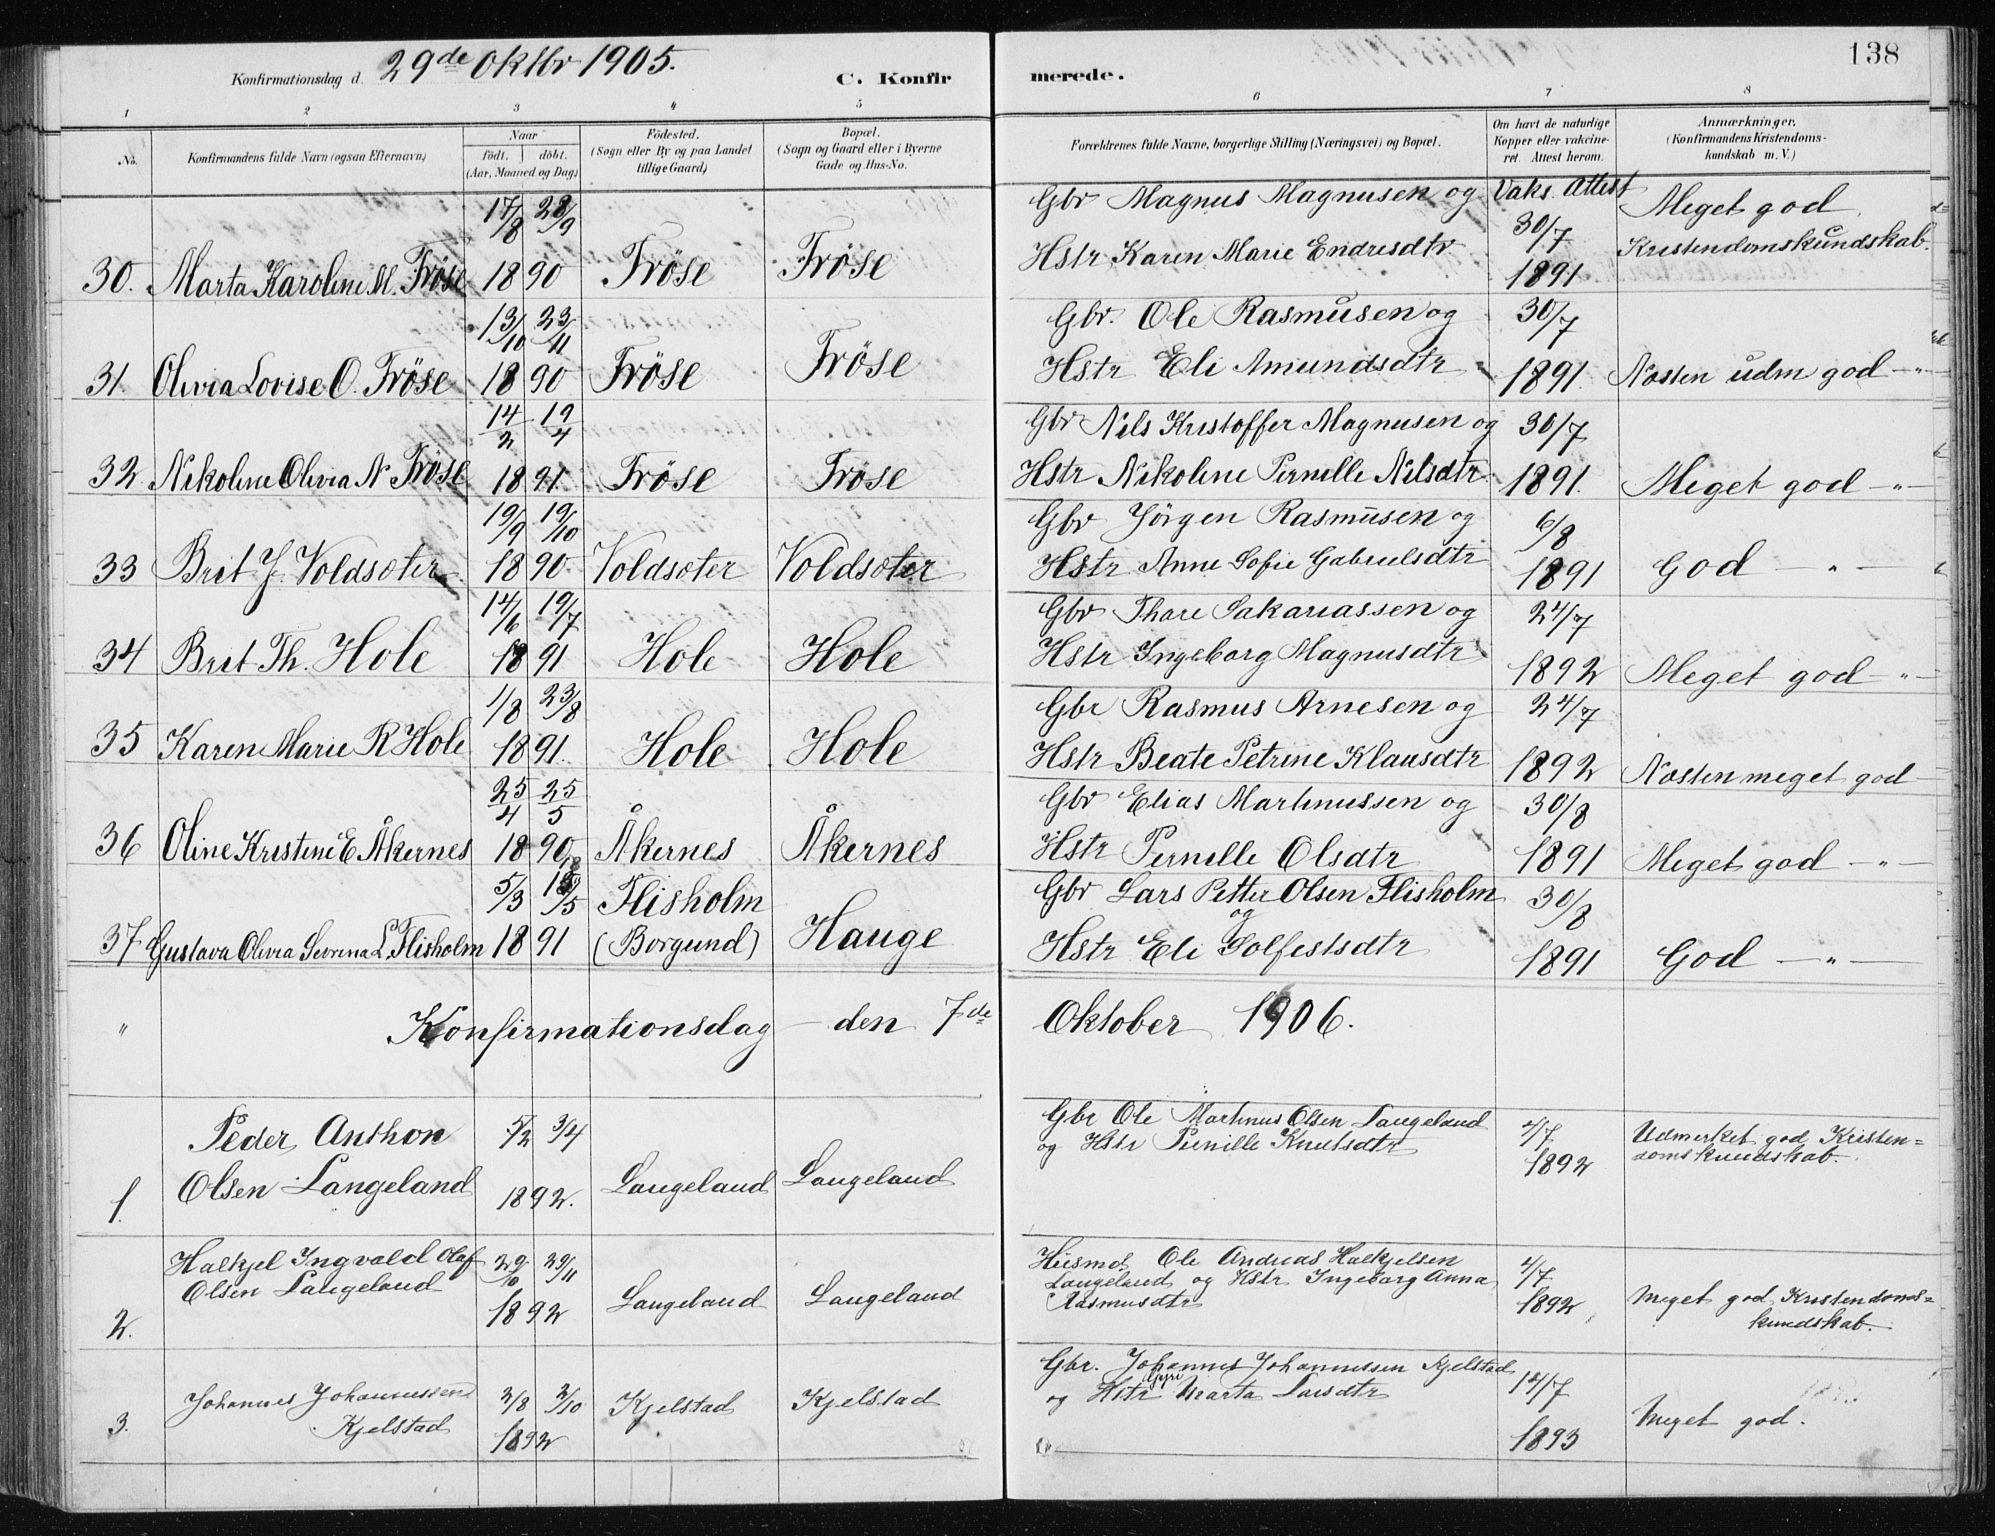 138
Konfirmationsdag d. 29de Oktbr 1905.
C. Konfirmerede.
1 2 3 4 5 6 7 8
No. Konfirmandens fulde Navn (ogsaa Efternavn)
Naar født. døbt. (Aar, Maaned og Dag)
Fødested. (Sogn eller By og paa Landet tillige Gaard)
Bopæl. (Sogn og Gaard eller i Byerne Gade og Hus-No.
Forældrenes fulde Navne, borgerlige Stilling (Næringsvei) og Bopæl.
Om havt de naturlige Kopper eller vakcineret. Attest herom.
Anmærkninger. (Konfirmandens Kristendomskundskab m. V.)
17/8 28/9 Gbr Magnus Magnusen og Vaks. Attest Meget god
30. Marta Karoline M. Frøse 18 90 Frøse Frøse Hstr Karen Marie Endresdtr 30/7 1891 Kristendomskundskab.
13/10 23/11 Gbr. Ole Rasmusen og 30/7
31. Olivia Lovise O. Frøse 18 90 Frøse Frøse Hstr Eli Amundsdtr 1891 Næsten udm god — " —
14/2 19/4 Gbr Nils Kristoffer Magnusen og 30/7
32. Nikoline Olivia N Frøse 18 91 Frøse Frøse Hstr Nikoline Pernille Nilsdtr 1891. Meget god — " —
19/9 19/10 Gbr Jørgen Rasmusen og 6/8
33 Brit J. Voldsæter 18 90 Voldsæter Voldsæter Hstr Anne Sofie Gabrielsdtr 1891 God — " —
14/6 19/7 Gbr Thare Sakariassen og 24/7
34 Brit Th. Hole 18 91 Hole Hole Hstr Ingeborg Magnusdtr 1892 Meget god — " —
1/8 23/8 Gbr Rasmus Arnesen og 24/7
35 Karen Marie R Hole 18 91. Hole Hole Hstr Beate Petrine Klausdtr 1892 Næsten meget god —
25/4 25/5 Gbr Elias Martinussen og 30/8
36 Oline Kristine E Åkernes 18 90 Åkernes Åkernes Hstr Pernille Olsdtr 1891 Meget god — " —
5/3 Flisholm Gbr Lars Petter Olsen Flisholm og 30/8
37 Gustava Olivia Sevrina L. Flisholm 18 91 (Borgund) Hauge Hstr Eli Solfestsdtr 1891 God — " —
" Konfirmationsdag — den 7de Oktober 1906.
Peder Anthon 5/2 3/4 Gbr Ole Martinus Olsen Langeland 4/7 Udmerket god Kristen=
og Hstr Pernille Knutsdtr 1892 domskundskab.
1. Olsen Langeland 1892. Langeland Langeland
Halkjel Ingvald Olaf 29/10 29/11 Husmd Ole Andreas Halkjelsen 4/7
Olsen Langeland Langeland og Hstr Ingeborg Anna
2. 1892 Langeland Langeland Rasmusdtr 1892 Meget god Kristendoms=
kundskab.
Johannes Johannessen 2/8 2/10 Kjelstad Kjelstad Gbr. Johannes Johannessen Kjelstad 14/7
og Hstr Gyri Marta Larsdtr
3. Kjelstad 1892 1893 Meget god.